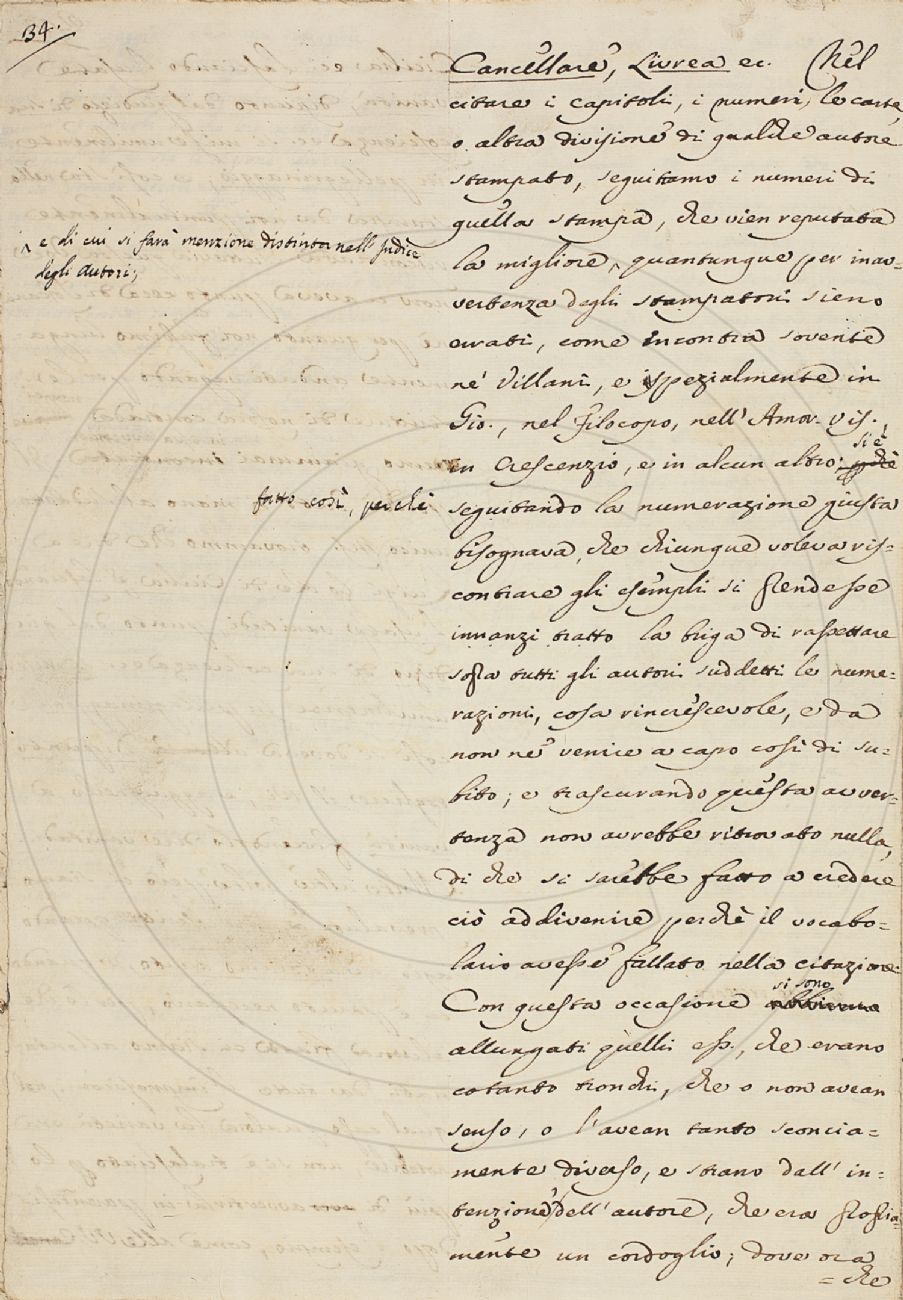 34.
Cancellare, Livrea ec. Nel
citare i capitoli, i numeri, le carte,
o altra divisione di qualche autore
stampato, seguitiamo i numeri di
quella stampa, che vien reputata
^ e di cui si farà menzione distinta nell'Indice
degli autori;
la migliore, ^ quantunque per inav=
vertenza degli stampatori sieno
errati, come incontra sovente
ne' Villani, e spezialmente in
Gio., nel Filocopo, nell'Amor. Vis.,
in Crescenzio, e in alcun altro; si è
fatto così, perchè
seguitando la numerazione giusta
bisognava, che chiunque voleva ris=
contrare gli esempli si prendesse
innanzi tratto la briga di rassettare
sopra tutti gli autori suddetti le nume=
razioni, cosa rincrescevole, e da
non ne venire a capo così di su=
bito; e trascurando questa avver=
tenza non avrebbe ritrovato nulla,
di che si sarebbe fatto a credere
ciò addivenire perchè il vocabo=
lario avesse fallato nella citazione.
Con questa occasione si sono
allungati quelli ess., che erano
cotanto tronchi, che o non avean
senso, o l'avean tanto sconcia=
mente diverso, e strano dall'in=
tenzione dell'autore, che era propria=
mente un cordoglio; dove ora
= che